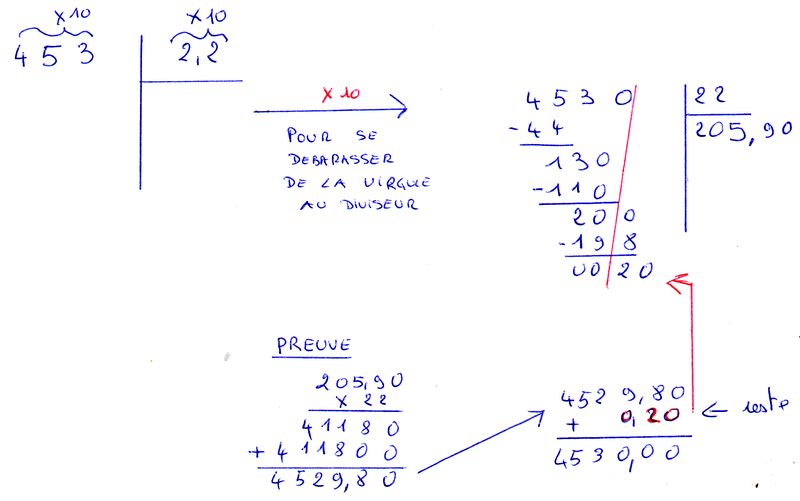 x10 x10
4 5 3 2,2
x 10
POUR SE
DEBARASSER
DE LA VIRGULE
AU DIVISEUR
4 5 3 0 22
- 4 4 205,90
1 3 0
- 1 1 0
2 0 0
- 1 9 8
00 20
PREUVE
205,90
x 22
4 1 1 8 0
+ 4 1 1 8 0 0
4 5 2 9,8 0
452 9,80
+ 0,20 ← reste
4530,00